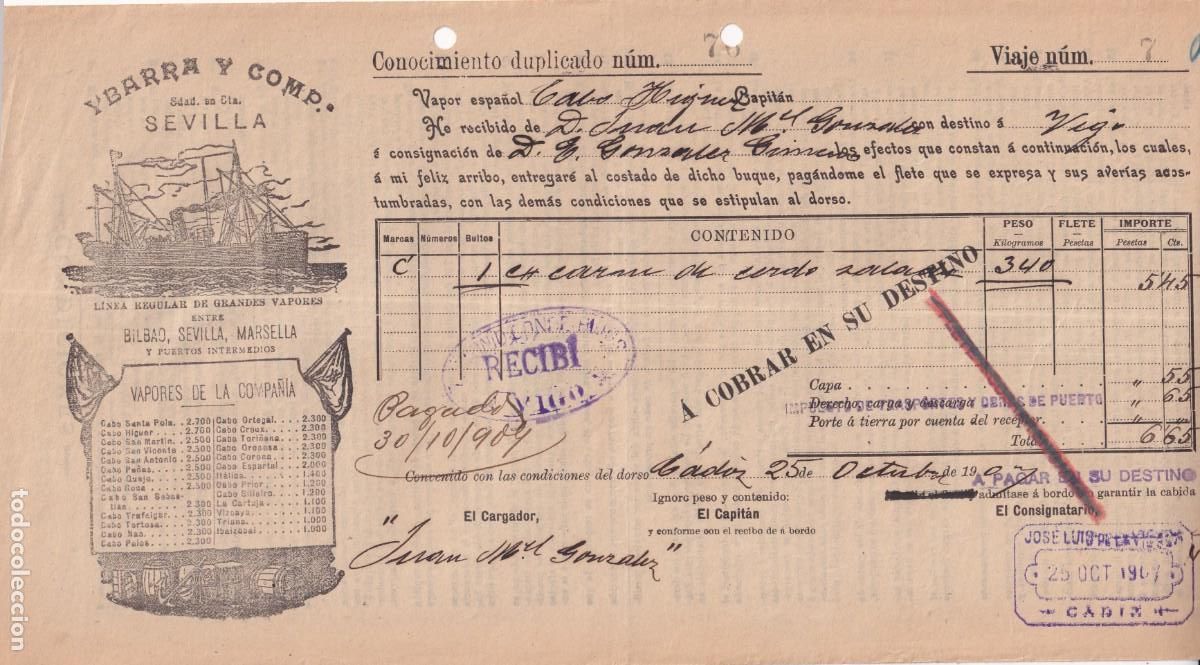 YBARRA Y COMP.
Sdad. en Cta.
SEVILLA
LÍNEA REGULAR DE GRANDES VAPORES
ENTRE
BILBAO, SEVILLA, MARSELLA
Y PUERTOS INTERMEDIOS
VAPORES DE LA COMPAÑÍA
Cabo Santa Pola. 2.700
Cabo Higuer 2.700
Cabo San Martin. 2.500
Cabo San Vicente 2.500
Cabo San Antonio 2.500
Cabo Peñas. 2.500
Cabo Quejo. 2.500
Cabo Roca 2.500
Cabo San Sebastian. 2.300
Cabo Trafalgar. 2.300
Cabo Tortosa. 2.300
Cabo Nao. 2.300
Cabo Palos 2.300
Cabo Ortegal. 2.300
Cabo Creux. 2.300
Cabo Toriñana. 2.300
Cabo Oropesa 2.300
Cabo Corona 2.300
Cabo Espartel 2.000
Itálica. 1.200
Cabo Prior. 1.200
Cabo Silleiro. 1.200
La Cartuja. 1.100
Vizcaya. 1.100
Triana. 1.000
Ibaizabal. 1.000
Conocimiento duplicado núm. 76
Viaje núm. 7
Vapor español Cabo Higuer Capitán
He recibido de D. Juan Ml. Gonzalez con destino á Vigo
á consignación de D. E. Gonzalez los efectos que constan á continuación, los cuales,
á mi feliz arribo, entregaré al costado de dicho buque, pagándome el flete que se expresa y sus averías acostumbradas, con las demás condiciones que se estipulan al dorso.
Marcas Números Bultos CONTENIDO PESO Kilogramos FLETE Pesetas IMPORTE Pesetas Cts.
C 1 c/ carne de cerdo salada 340 5 45
RECIBÍ
VIGO
Á COBRAR EN SU DESTINO
Capa " 55
Derecho, carga y descarga " 65
IMPUESTO DE TRANSPORTES Y OBRAS DE PUERTO
Porte á tierra por cuenta del receptor. " "
Total 6 65
Pagado
30/10/907
Convenido con las condiciones del dorso Cádiz 25 de Octubre de 1907
A PAGAR EN SU DESTINO
admitase á bordo sin garantir la cabida
Ignoro peso y contenido:
El Cargador,
El Capitán
El Consignatario,
y conforme con el recibo de á bordo
"Juan Ml. Gonzalez"
JOSÉ LUIS DE LA VIESCA
25 OCT 1907
CÁDIZ
todocoleccion